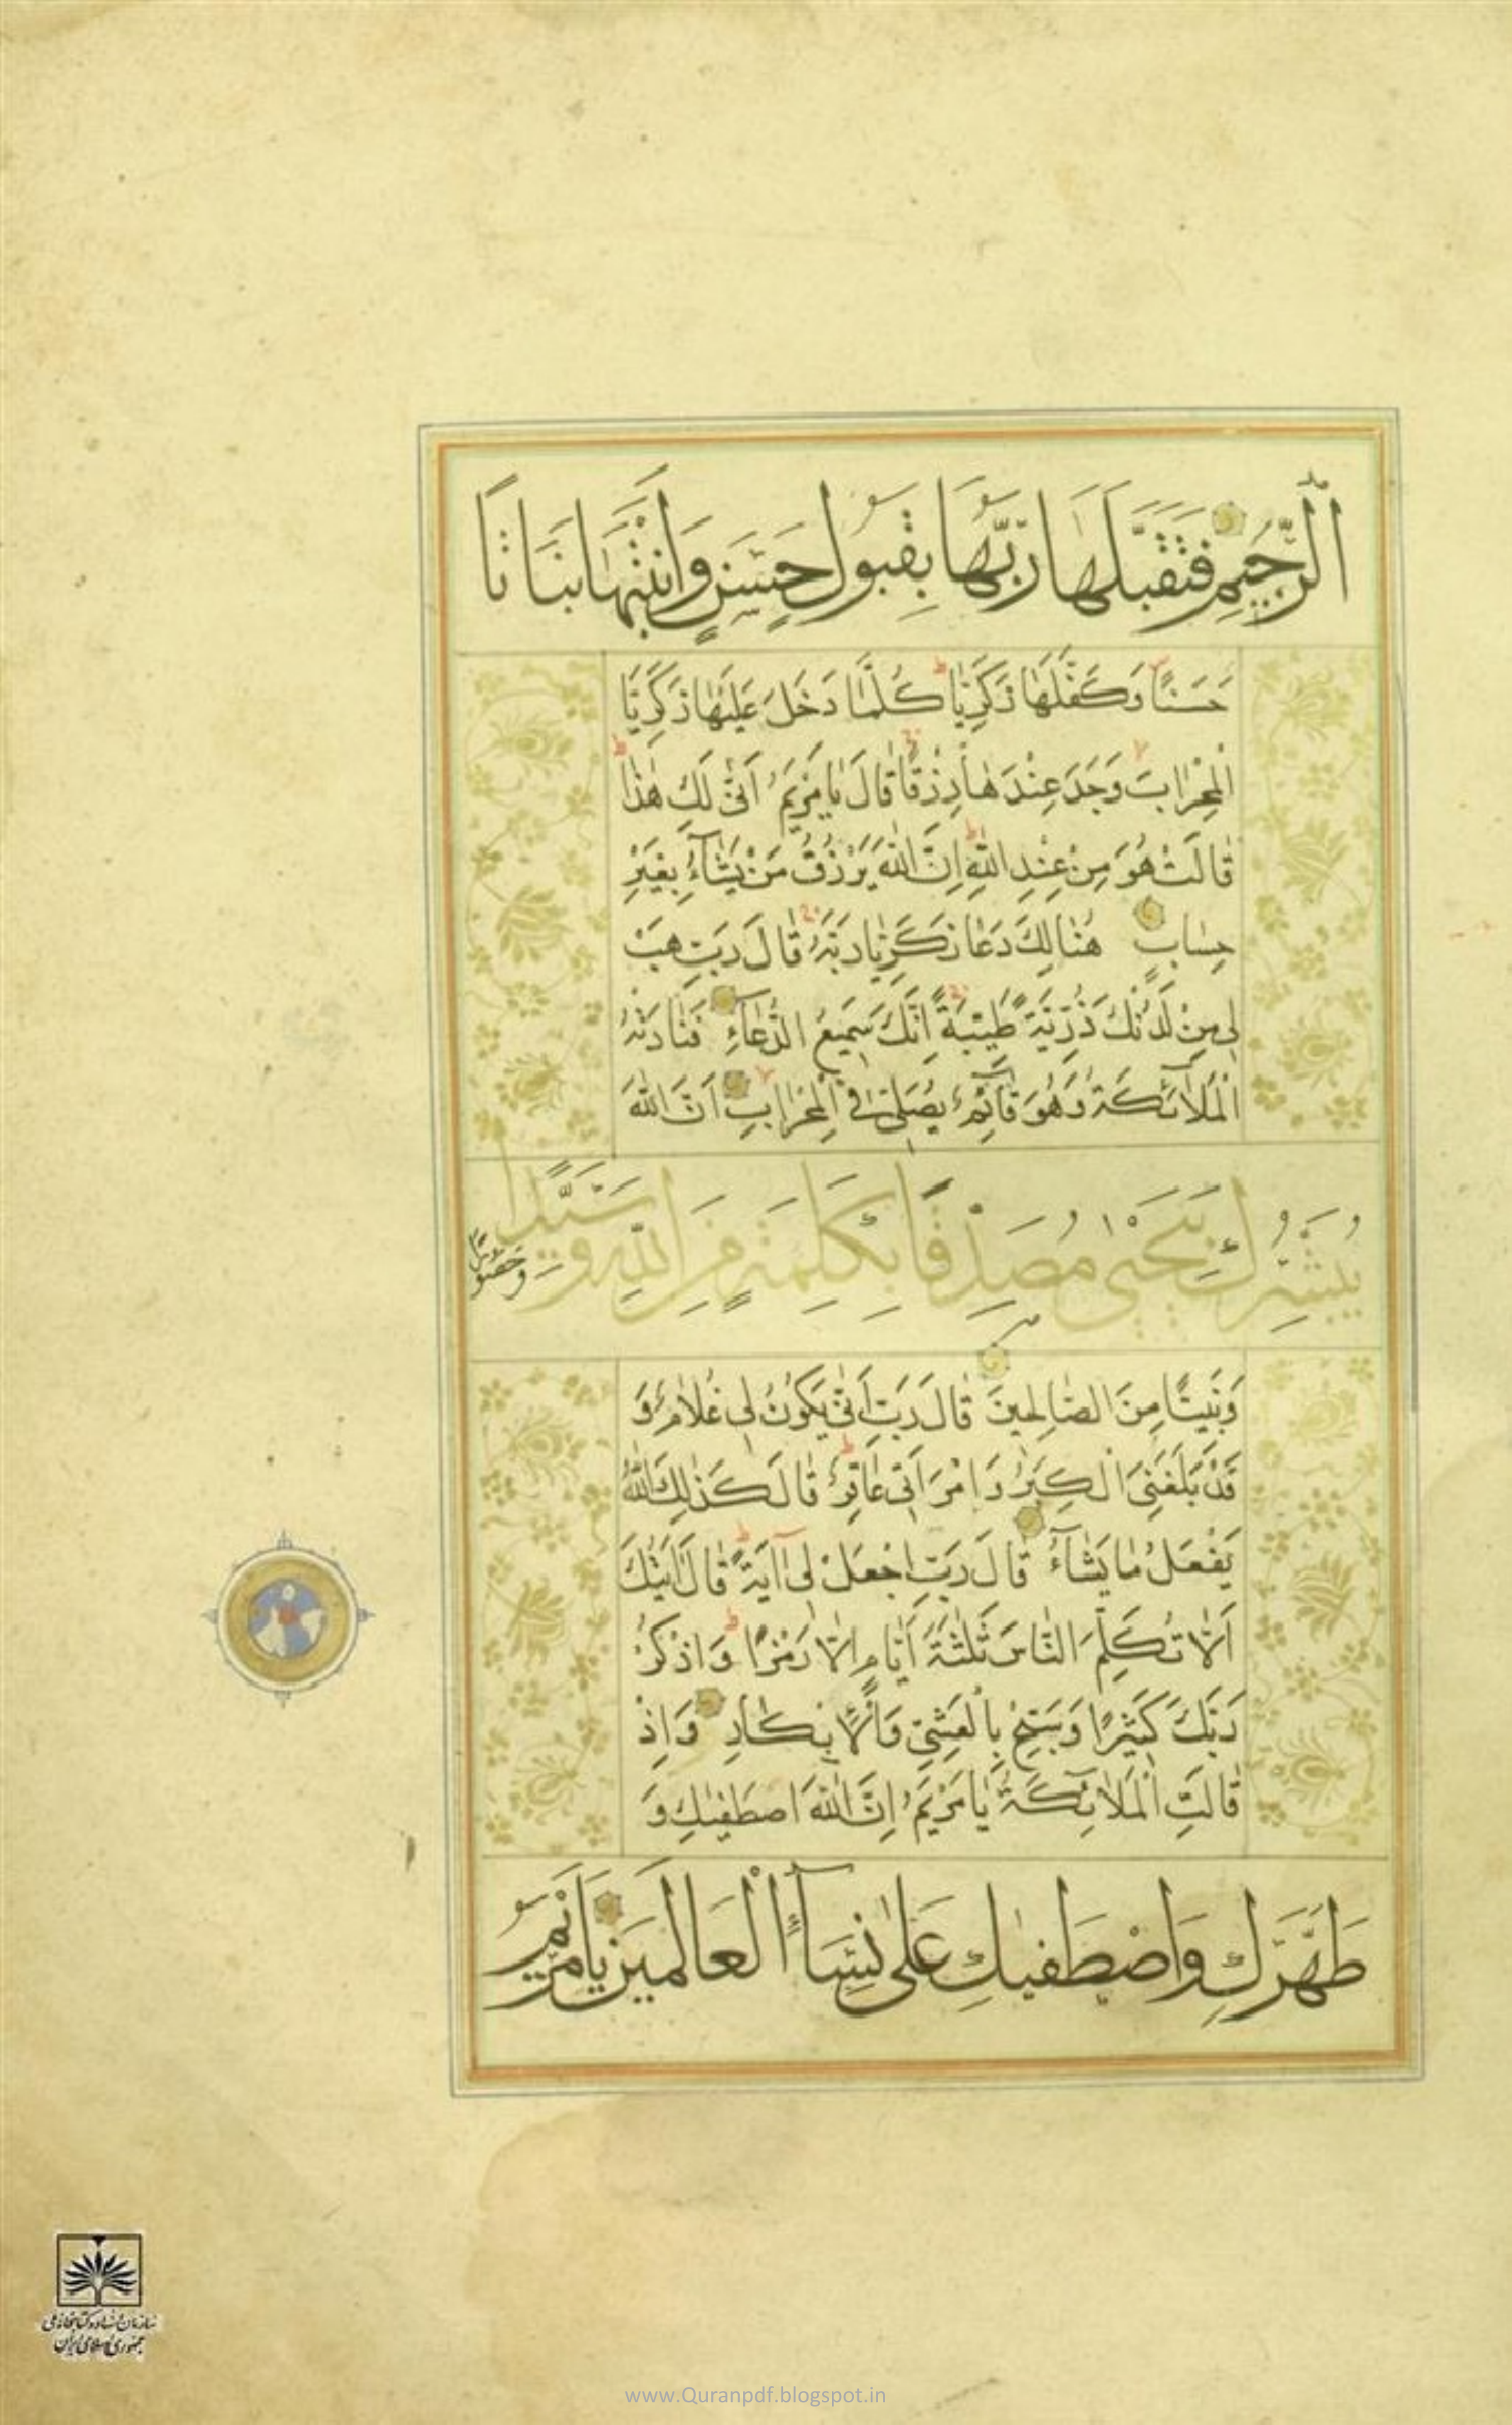 ٱلرَّجِيمِ فَتَقَبَّلَهَا رَبُّهَا بِقَبُولٍ حَسَنٍ وَأَنْبَتَهَا نَبَاتًا
حَسَنًا وَكَفَّلَهَا زَكَرِيَّا كُلَّمَا دَخَلَ عَلَيْهَا زَكَرِيَّا
الْمِحْرَابَ وَجَدَ عِنْدَهَا رِزْقًا قَالَ يَا مَرْيَمُ اَنّٰى لَكِ هٰذَا
قَالَتْ هُوَ مِنْ عِنْدِ اللهِ اِنَّ اللهَ يَرْزُقُ مَنْ يَشَآءُ بِغَيْرِ
حِسَابٍ هُنَالِكَ دَعَا زَكَرِيَّا رَبَّهُ قَالَ رَبِّ هَبْ
لِي مِنْ لَدُنْكَ ذُرِّيَّةً طَيِّبَةً اِنَّكَ سَمِيعُ الدُّعَآءِ فَنَادَتْهُ
الْمَلَائِكَةُ وَهُوَ قَآئِمٌ يُصَلِّي فِي الْمِحْرَابِ اَنَّ اللهَ
يُبَشِّرُكَ بِيَحْيٰى مُصَدِّقًا بِكَلِمَةٍ مِنَ اللهِ وَسَيِّدًا وَحَصُورًا
وَنَبِيًّا مِنَ الصَّالِحِينَ قَالَ رَبِّ اَنّٰى يَكُونُ لِي غُلَامٌ وَ
قَدْ بَلَغَنِيَ الْكِبَرُ وَامْرَاَتِي عَاقِرٌ قَالَ كَذٰلِكَ اللهُ
يَفْعَلُ مَا يَشَآءُ قَالَ رَبِّ اجْعَلْ لِي آيَةً قَالَ اٰيَتُكَ
اَلَّا تُكَلِّمَ النَّاسَ ثَلٰثَةَ اَيَّامٍ اِلَّا رَمْزًا وَاذْكُرْ
رَبَّكَ كَثِيرًا وَسَبِّحْ بِالْعَشِيِّ وَالْاِبْكَارِ وَاِذْ
قَالَتِ الْمَلَائِكَةُ يَا مَرْيَمُ اِنَّ اللهَ اصْطَفٰيكِ وَ
طَهَّرَكِ وَاصْطَفٰيكِ عَلٰى نِسَآءِ الْعَالَمِينَ يَا مَرْيَمُ
سازمان اسناد و کتابخانه ملی
جمهوری اسلامی ایران
www.Quranpdf.blogspot.in